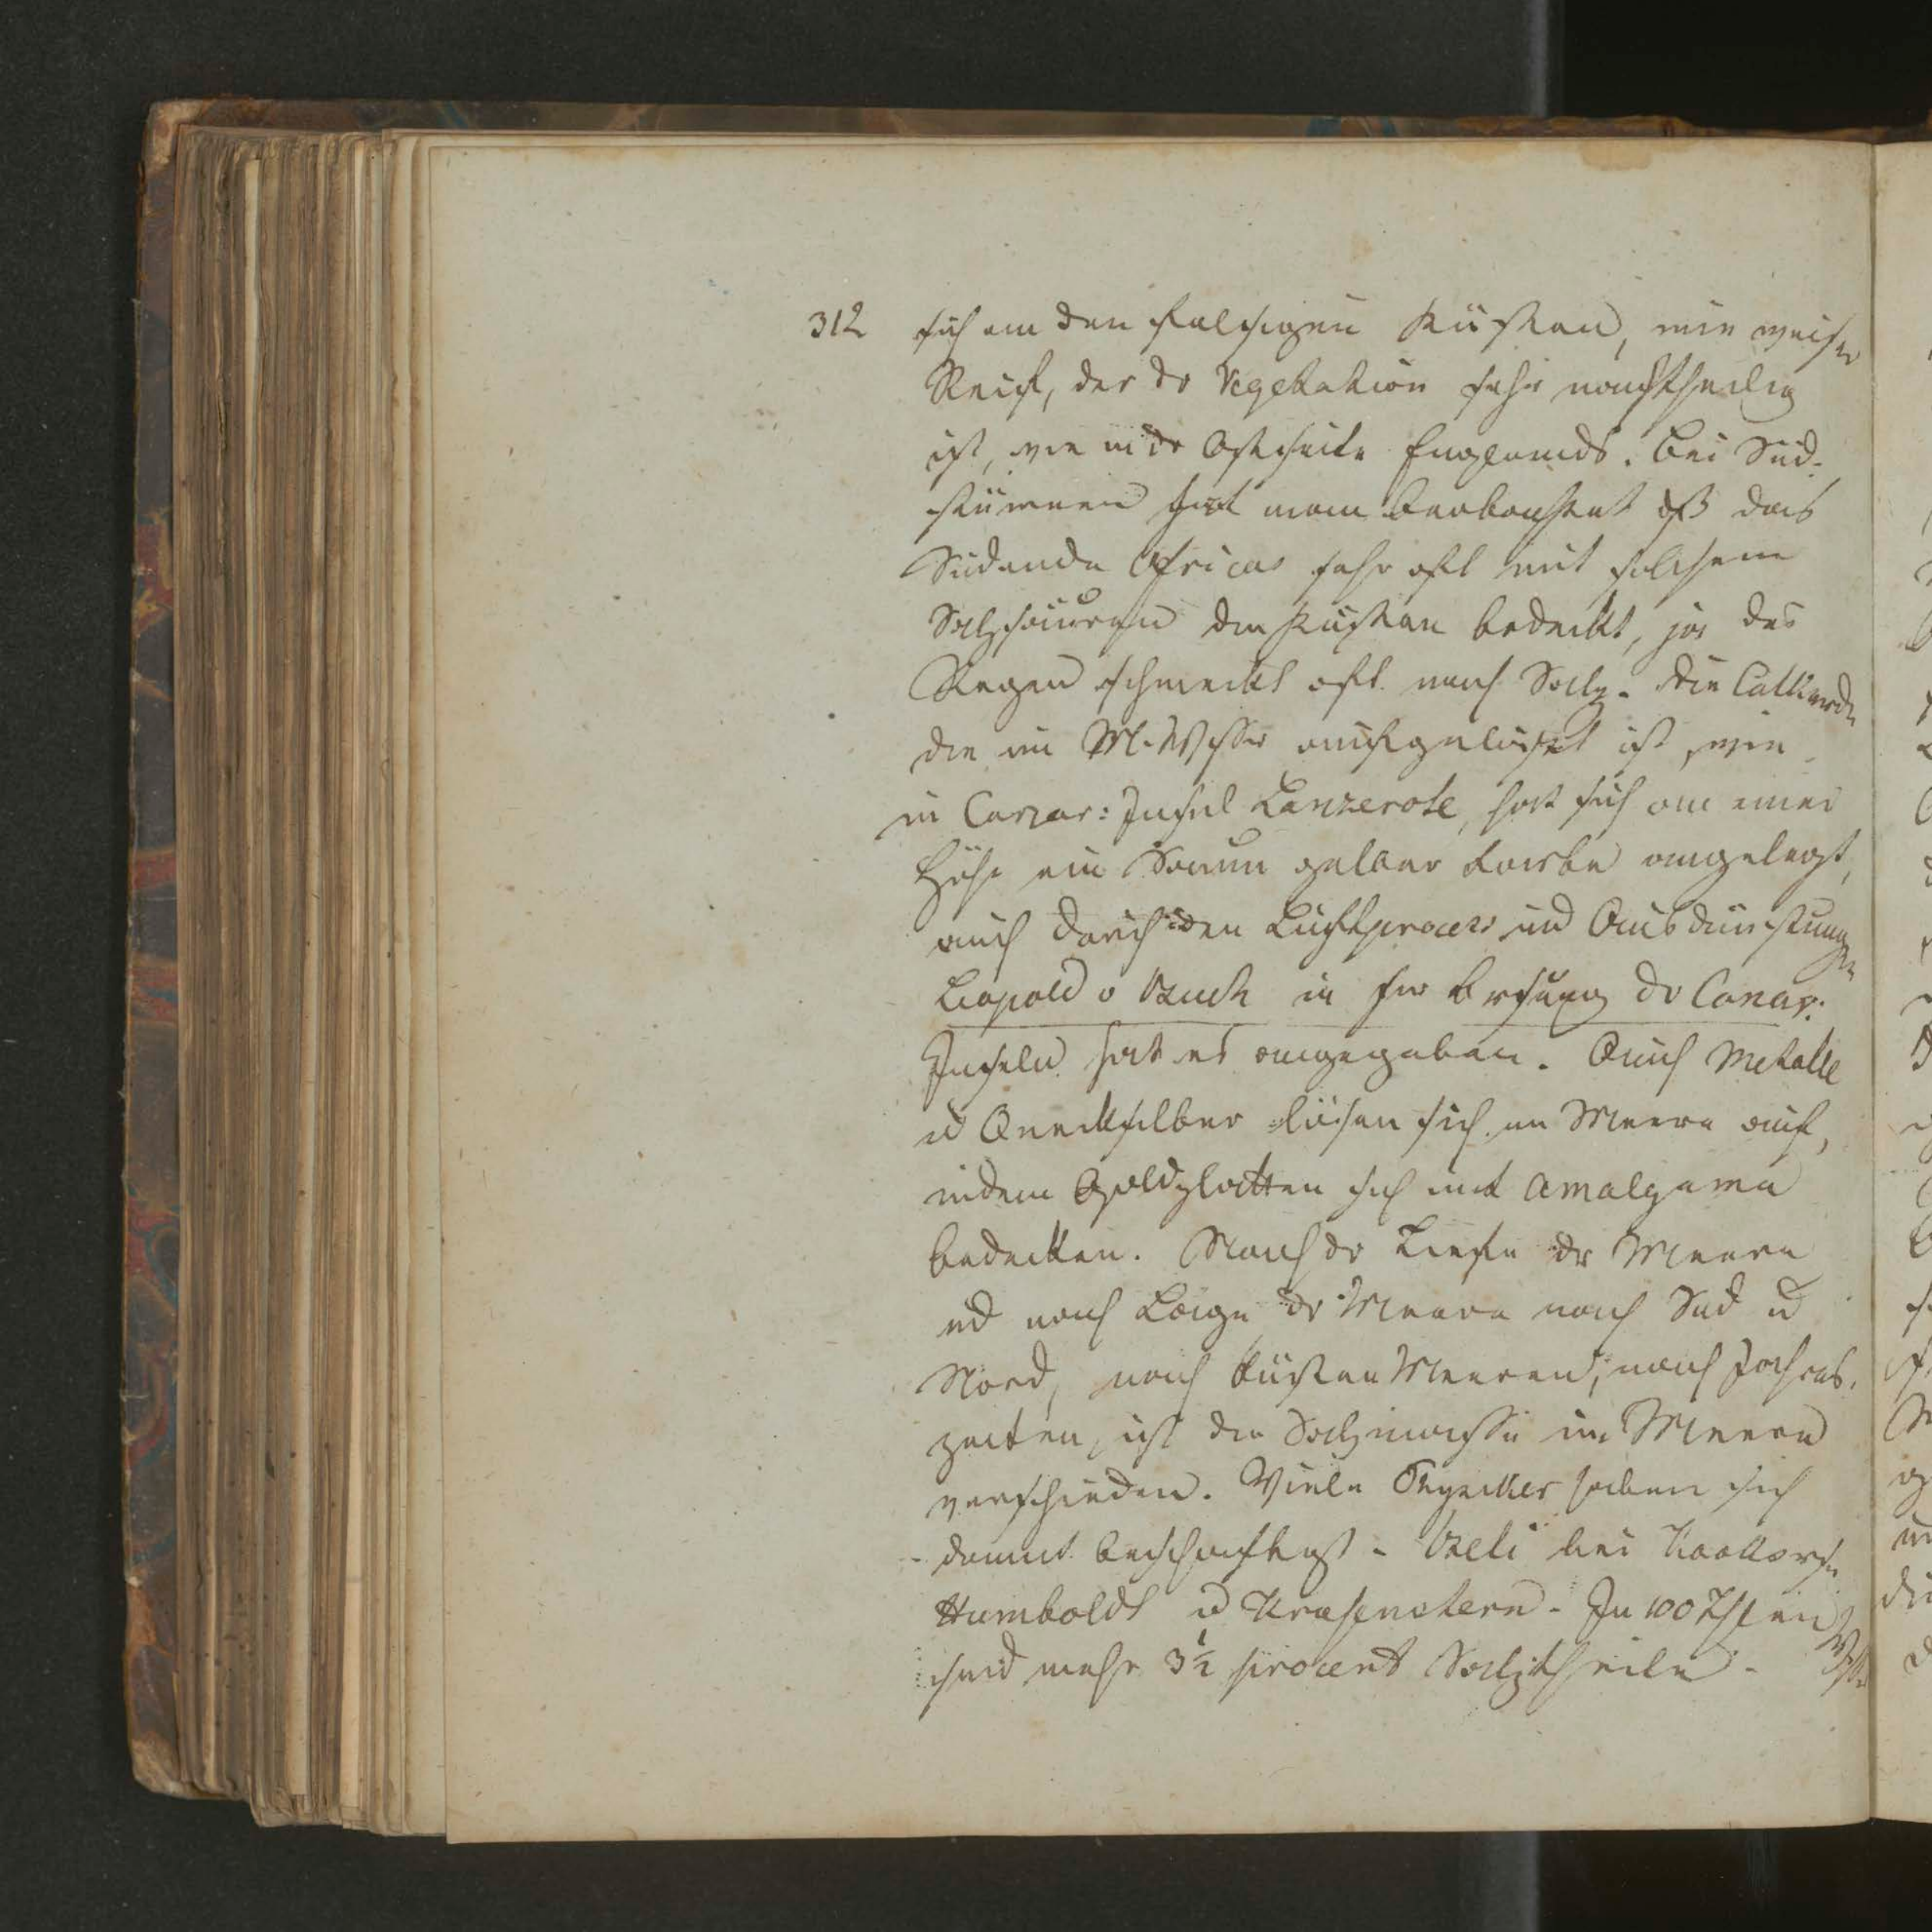 312 sich an den felsigen Küsten, wie weiser
Reif, der dr Vegetation sehr nachtheilig
ist, wie in dr Ostseite Englands. Bei Süd-
stürmen hat man beobachtet dß das
Südende Africas sehr oft mit solchem
die Küsten bedeckt, ja der
Regen schmeckt oft nach Salz. Die Talkerde
die im M. Wsser aufgelöset ist, wie
in Canar: Insel Lanzerote, hat sich an einer
Höhe ein Saum gelber Farbe angelegt,
auch durch den Luftprocess und Ausdünstungen
Leopold v Buch in sr Bschrbg dr Canar:
Inseln hat es angegeben. Auch Metalle
u Quecksilber lösen sich im Meere auf,
indem Goldplatten sich mit Amalgama
bedecken. Nach dr Tiefe dr Meere
ud nach Lage dr Meere nach Süd u
Nord, nach Küsten Meeren, nach Jahres-
zeiten, ist die Salzmasse im Meere
verschieden. Viele Physiker haben sich
damit beschäftigt.
Humboldt u Krusenstern. In 100 Thlen Wsser
sind mehr 3 1/2 procent Salztheile.